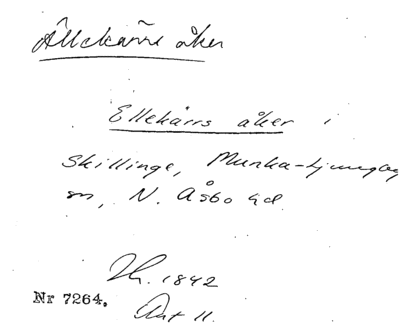 Ällekärrs åker
Ellekärrs åker i
Skillinge, Munka-Ljungby
sn, N. Åsbo hd.
1842
Nr 7264. Akt 11.